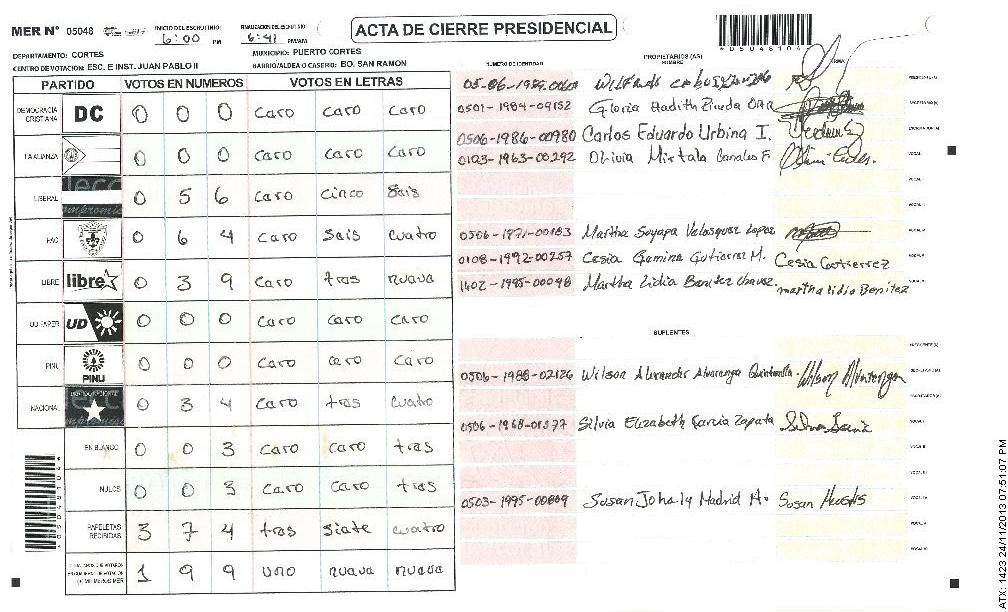 MER Nº 05048
INICIO DEL ESCRUTINIO: 6:00 PM
FINALIZACION DEL ESCRUTINIO: 6:41 PM/AM
ACTA DE CIERRE PRESIDENCIAL
* 0 5 0 4 8 1 0 4
DEPARTAMENTO: CORTES
MUNICIPIO: PUERTO CORTES
CENTRO DE VOTACION: ESC. E INST. JUAN PABLO II
BARRIO/ALDEA O CASERIO: BO. SAN RAMON
PARTIDO VOTOS EN NUMEROS VOTOS EN LETRAS
DEMOCRACIA CRISTIANA DC 0 0 0 caro caro caro
LA ALIANZA 0 0 0 caro caro caro
LIBERAL 0 5 6 caro cinco sais
PAC 0 6 4 caro sais cuatro
LIBRE libre 0 3 9 caro tras nuava
UD FAPER UD 0 0 0 caro caro caro
PINU PINU 0 0 0 caro caro caro
NACIONAL 0 3 4 caro tras cuatro
EN BLANCO 0 0 3 caro caro tras
NULOS 0 0 3 caro caro tras
PAPELETAS RECIBIDAS 3 7 4 tras siate cuatro
1 9 9 uno nuava nuava
NUMERO DE IDENTIDAD PROPIETARIOS (AS) NOMBRE FIRMA
PRESIDENTE (A)
0501-1984-09152 Gloria SECRETARIO (A)
0506-1986-00980 Carlos Eduardo Urbina I. ESCRUTADOR (A)
0123-1963-00292 Olivia Mirtala Canales F. VOCAL
0506-1971-00183 Martha Suyapa Velasquez Lopez
0108-1992-00257 Cesia Gemina Gutierrez M. Cesia Gutierrez
1402-1995-00098 Martha Lidia Benitez Chavez. martha lidia Benitez
SUPLENTES
0506-1988-02126 Wilson Alexander Alvarenga Quintanilla
0506-1968-01377 Silvia Elizabeth Garcia Zapata
0503-1995-00809 Susan Johaly Madrid M. Susan
ATX: 1423 24/11/2013 07:51:07 PM